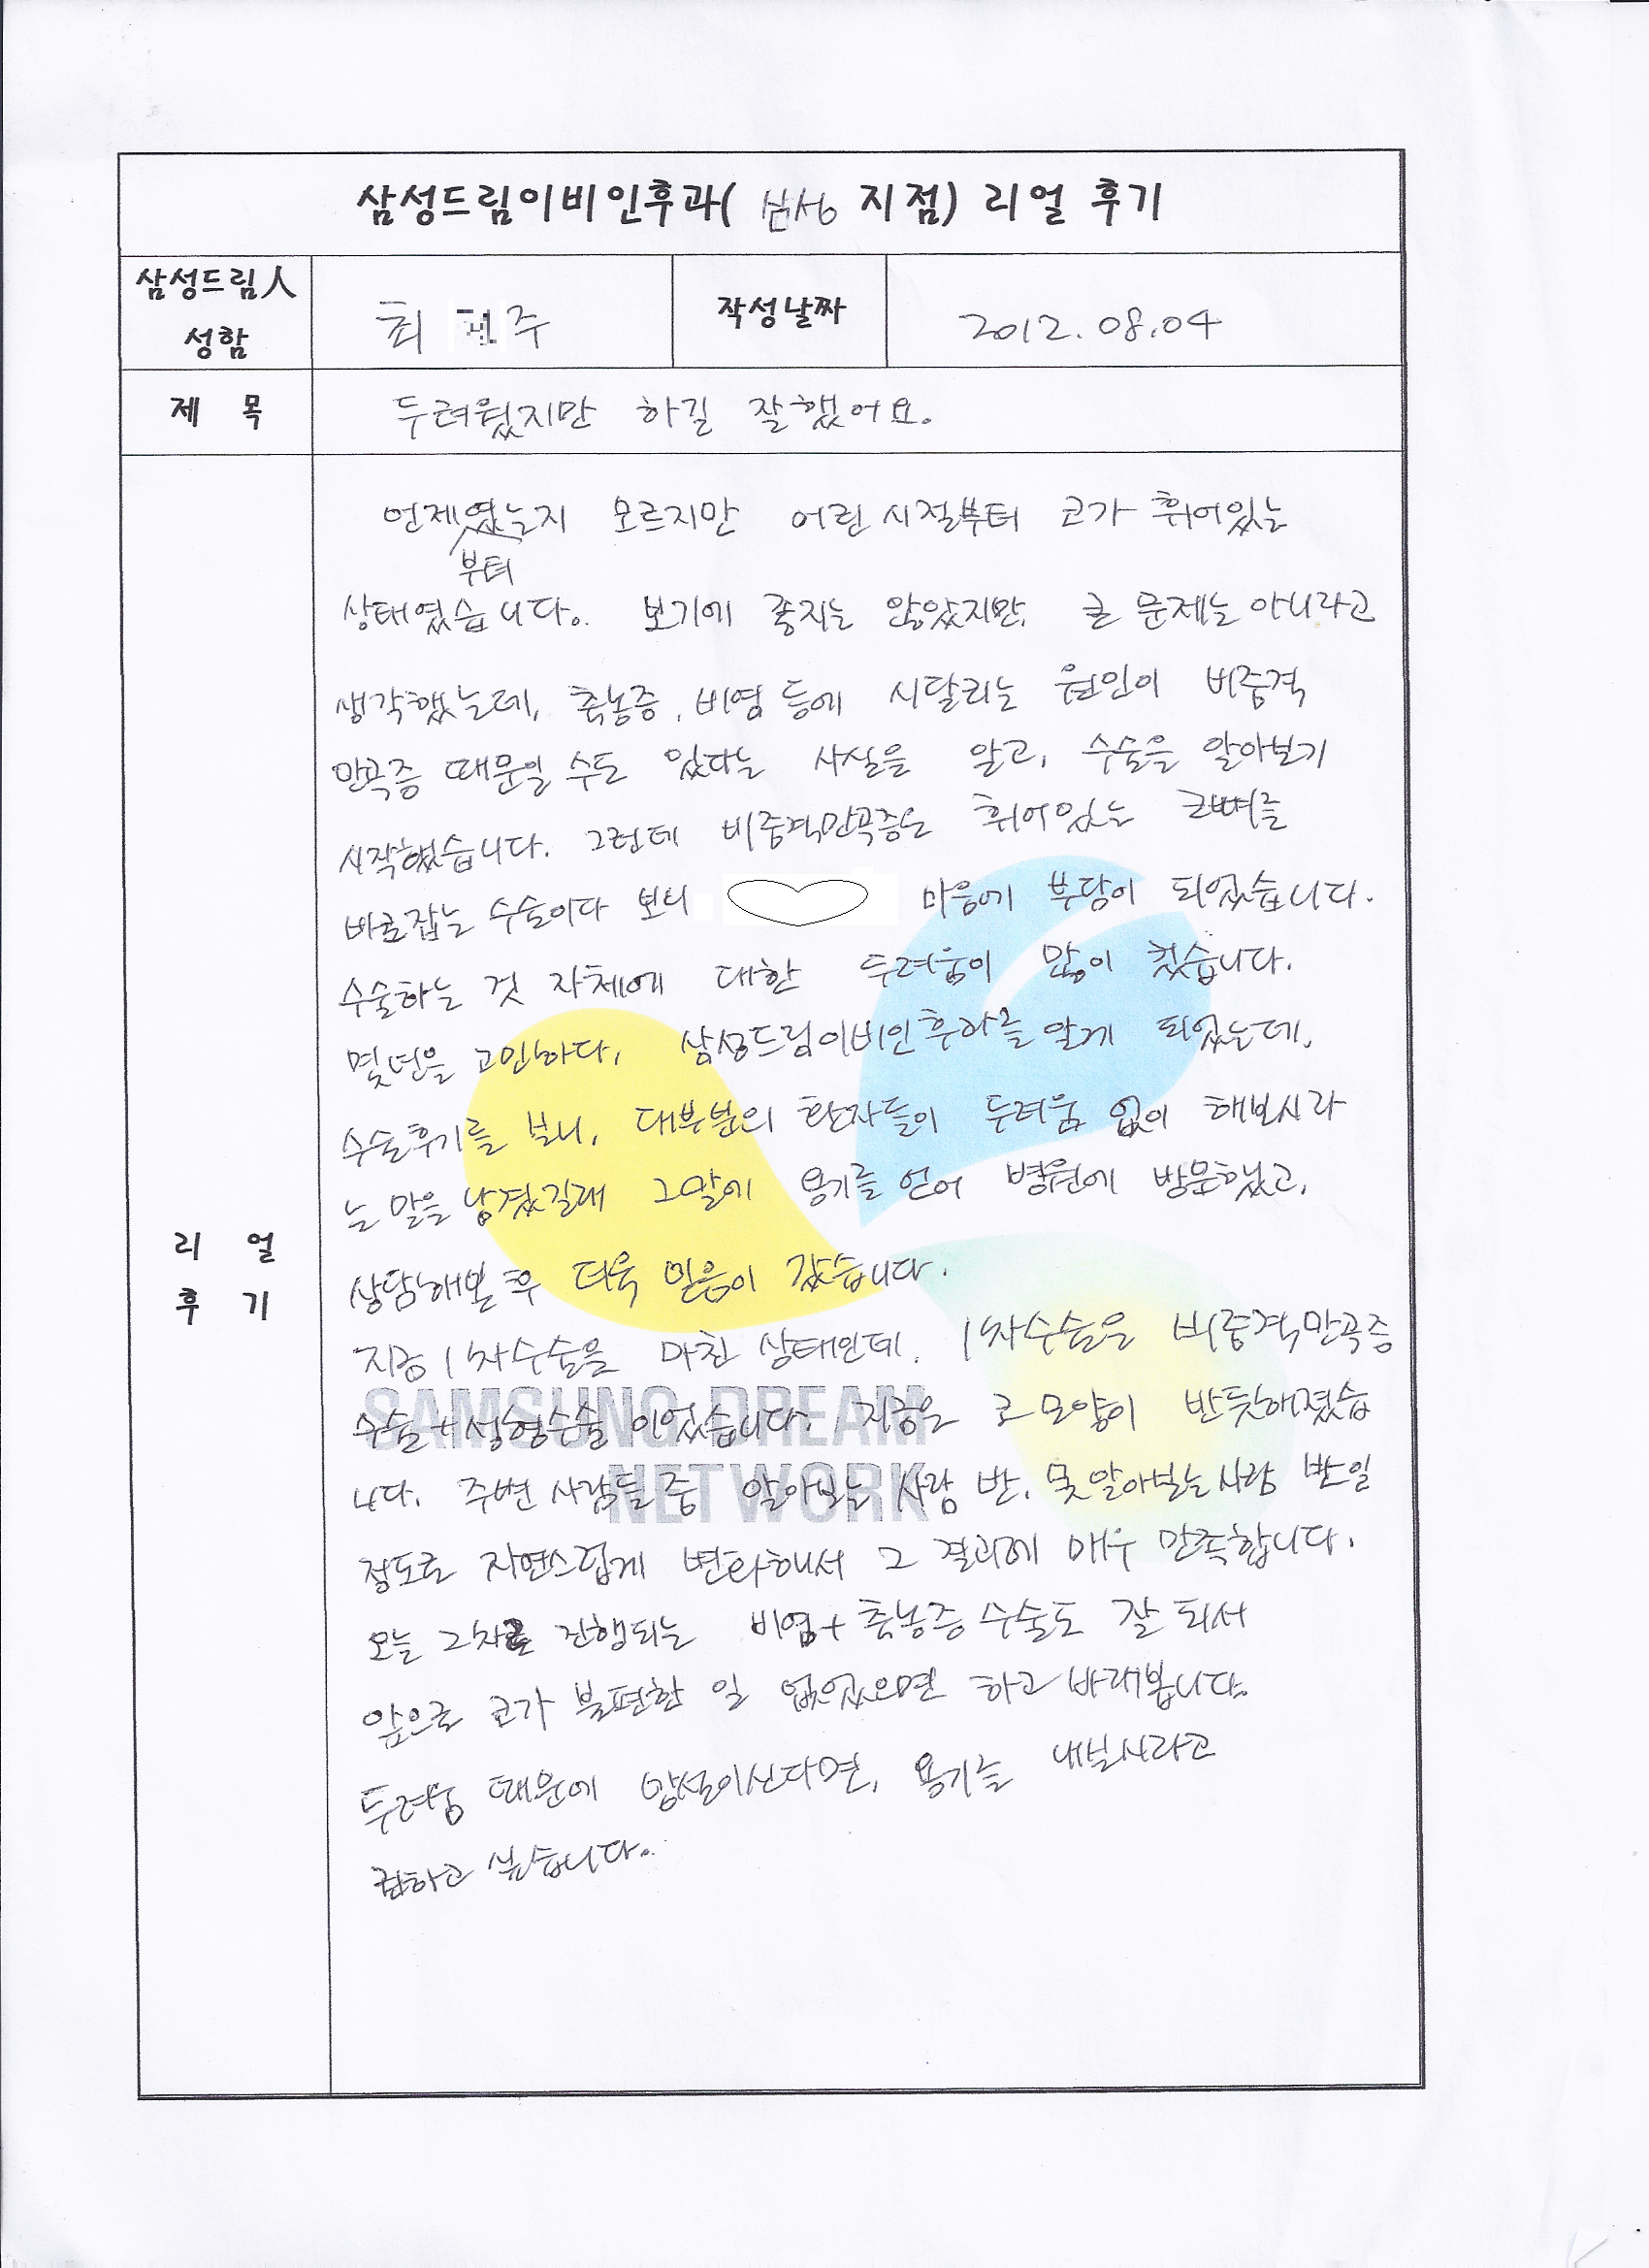 삼성드림이비인후과( 삼성 지점) 리얼 후기
삼성드림人
성함
최 주
작성날짜
2012.08.04
제 목
두려웠지만 하길 잘했어요.
언제였는지 모르지만 어린 시절부터 코가 휘어있는
부터
상태였습니다. 보기에 좋지는 않았지만, 큰 문제는 아니라고
생각했는데, 축농증, 비염 등에 시달리는 원인이 비중격
만곡증 때문일 수도 있다는 사실을 알고, 수술을 알아보기
시작했습니다. 그런데 비중격만곡증은 휘어있는 코뼈를
바로잡는 수술이다 보니 마음에 부담이 되었습니다.
수술하는 것 자체에 대한 두려움이 많이 컸습니다.
몇년을 고민하다, 삼성드림이비인후과를 알게 되었는데,
수술후기를 보니, 대부분의 환자들이 두려움 없이 해보시라
는 말을 남겼길래 그말에 용기를 얻어 병원에 방문했고,
상담해본 후 더욱 믿음이 갔습니다.
리 얼
후 기
지금 1차수술을 마친 상태인데, 1차수술은 비중격만곡증
수술+성형수술 이었습니다. 지금은 코 모양이 반듯해졌습
SAMSUNG DREAM
니다. 주변 사람들 중 알아보는 사람 반, 못 알아보는 사람 반일
NETWORK
정도로 자연스럽게 변화해서 그 결과에 매우 만족합니다.
오늘 2차로 진행되는 비염+축농증 수술도 잘 되서
앞으로 코가 불편한 일 없었으면 하고 바래봅니다.
두려움 때문에 망설이신다면, 용기를 내보시라고
권하고 싶습니다.